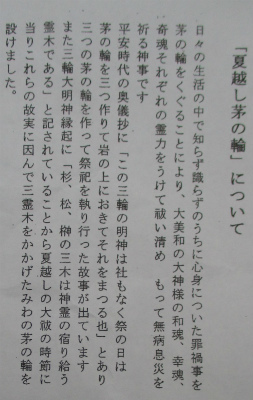 「夏越し茅の輪」について
日々の生活の中で知らず識らずのうちに心身についた罪禍事を
茅の輪をくぐることにより、大美和の大神様の和魂、幸魂、
奇魂それぞれの霊力をうけて祓い清め　もって無病息災を
祈る神事です
平安時代の奥儀抄に「この三輪の明神は社もなく祭の日は
茅の輪を三つ作りて岩の上におきてそれをまつる也」とあり
三つの茅の輪を作って祭祀を執り行った故事が出ています
また三輪大明神縁起に「杉、松、榊の三木は神霊の宿り給う
霊木である」と記されていることから夏越しの大祓の時節に
当りこれらの故実に因んで三霊木をかかげたみわの茅の輪を
設けました。